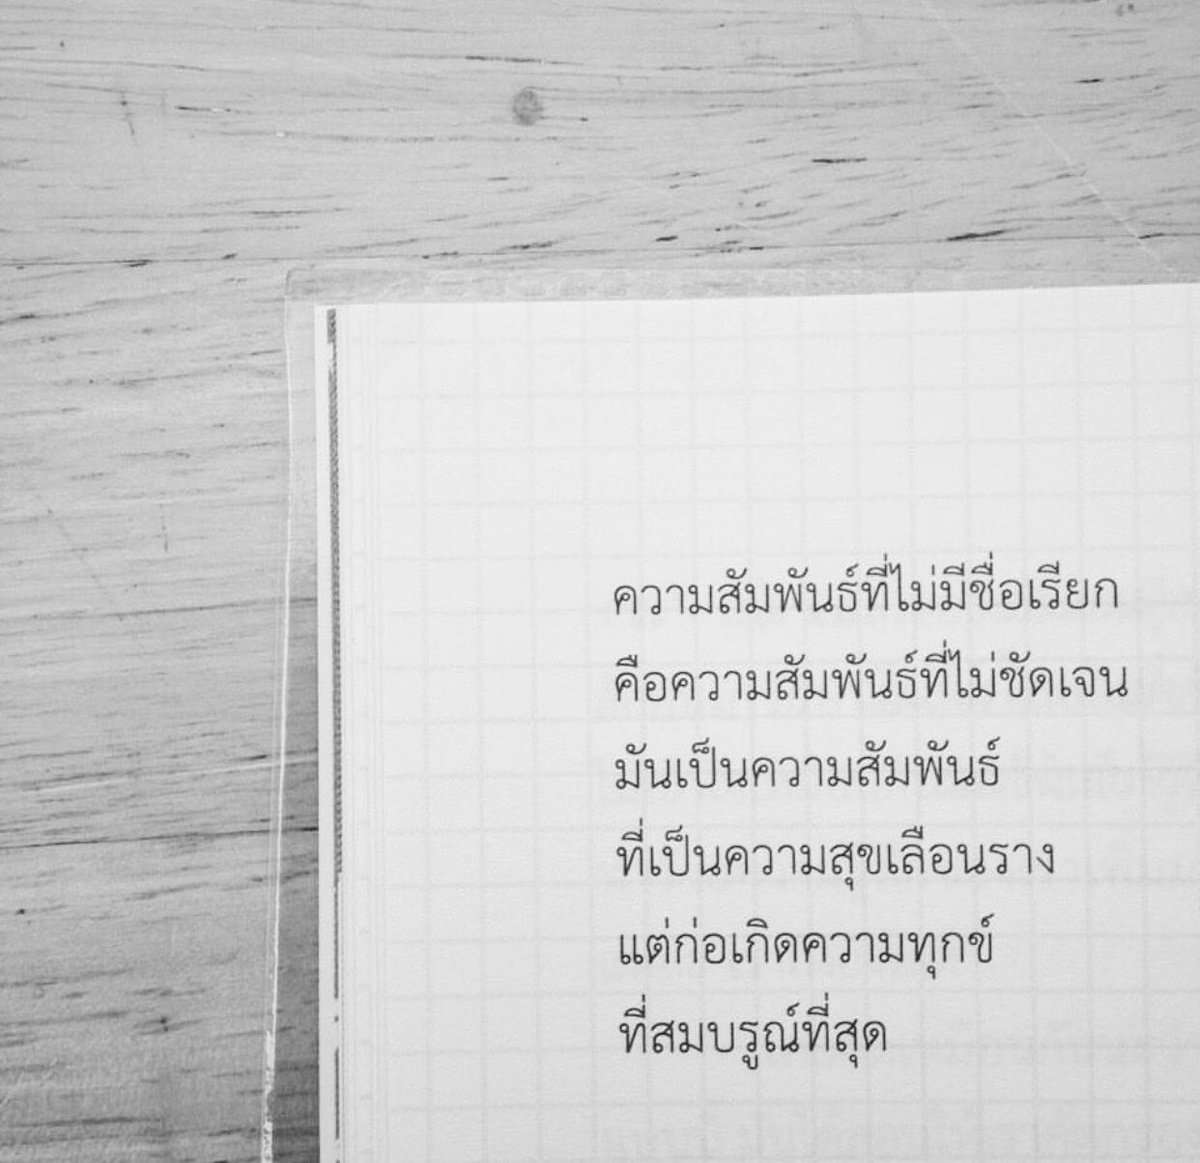 ความสัมพันธ์ที่ไม่มีชื่อเรียก
คือความสัมพันธ์ที่ไม่ชัดเจน
มันเป็นความสัมพันธ์
ที่เป็นความสุขเลือนราง
แต่ก่อเกิดความทุกข์
ที่สมบรูณ์ที่สุด